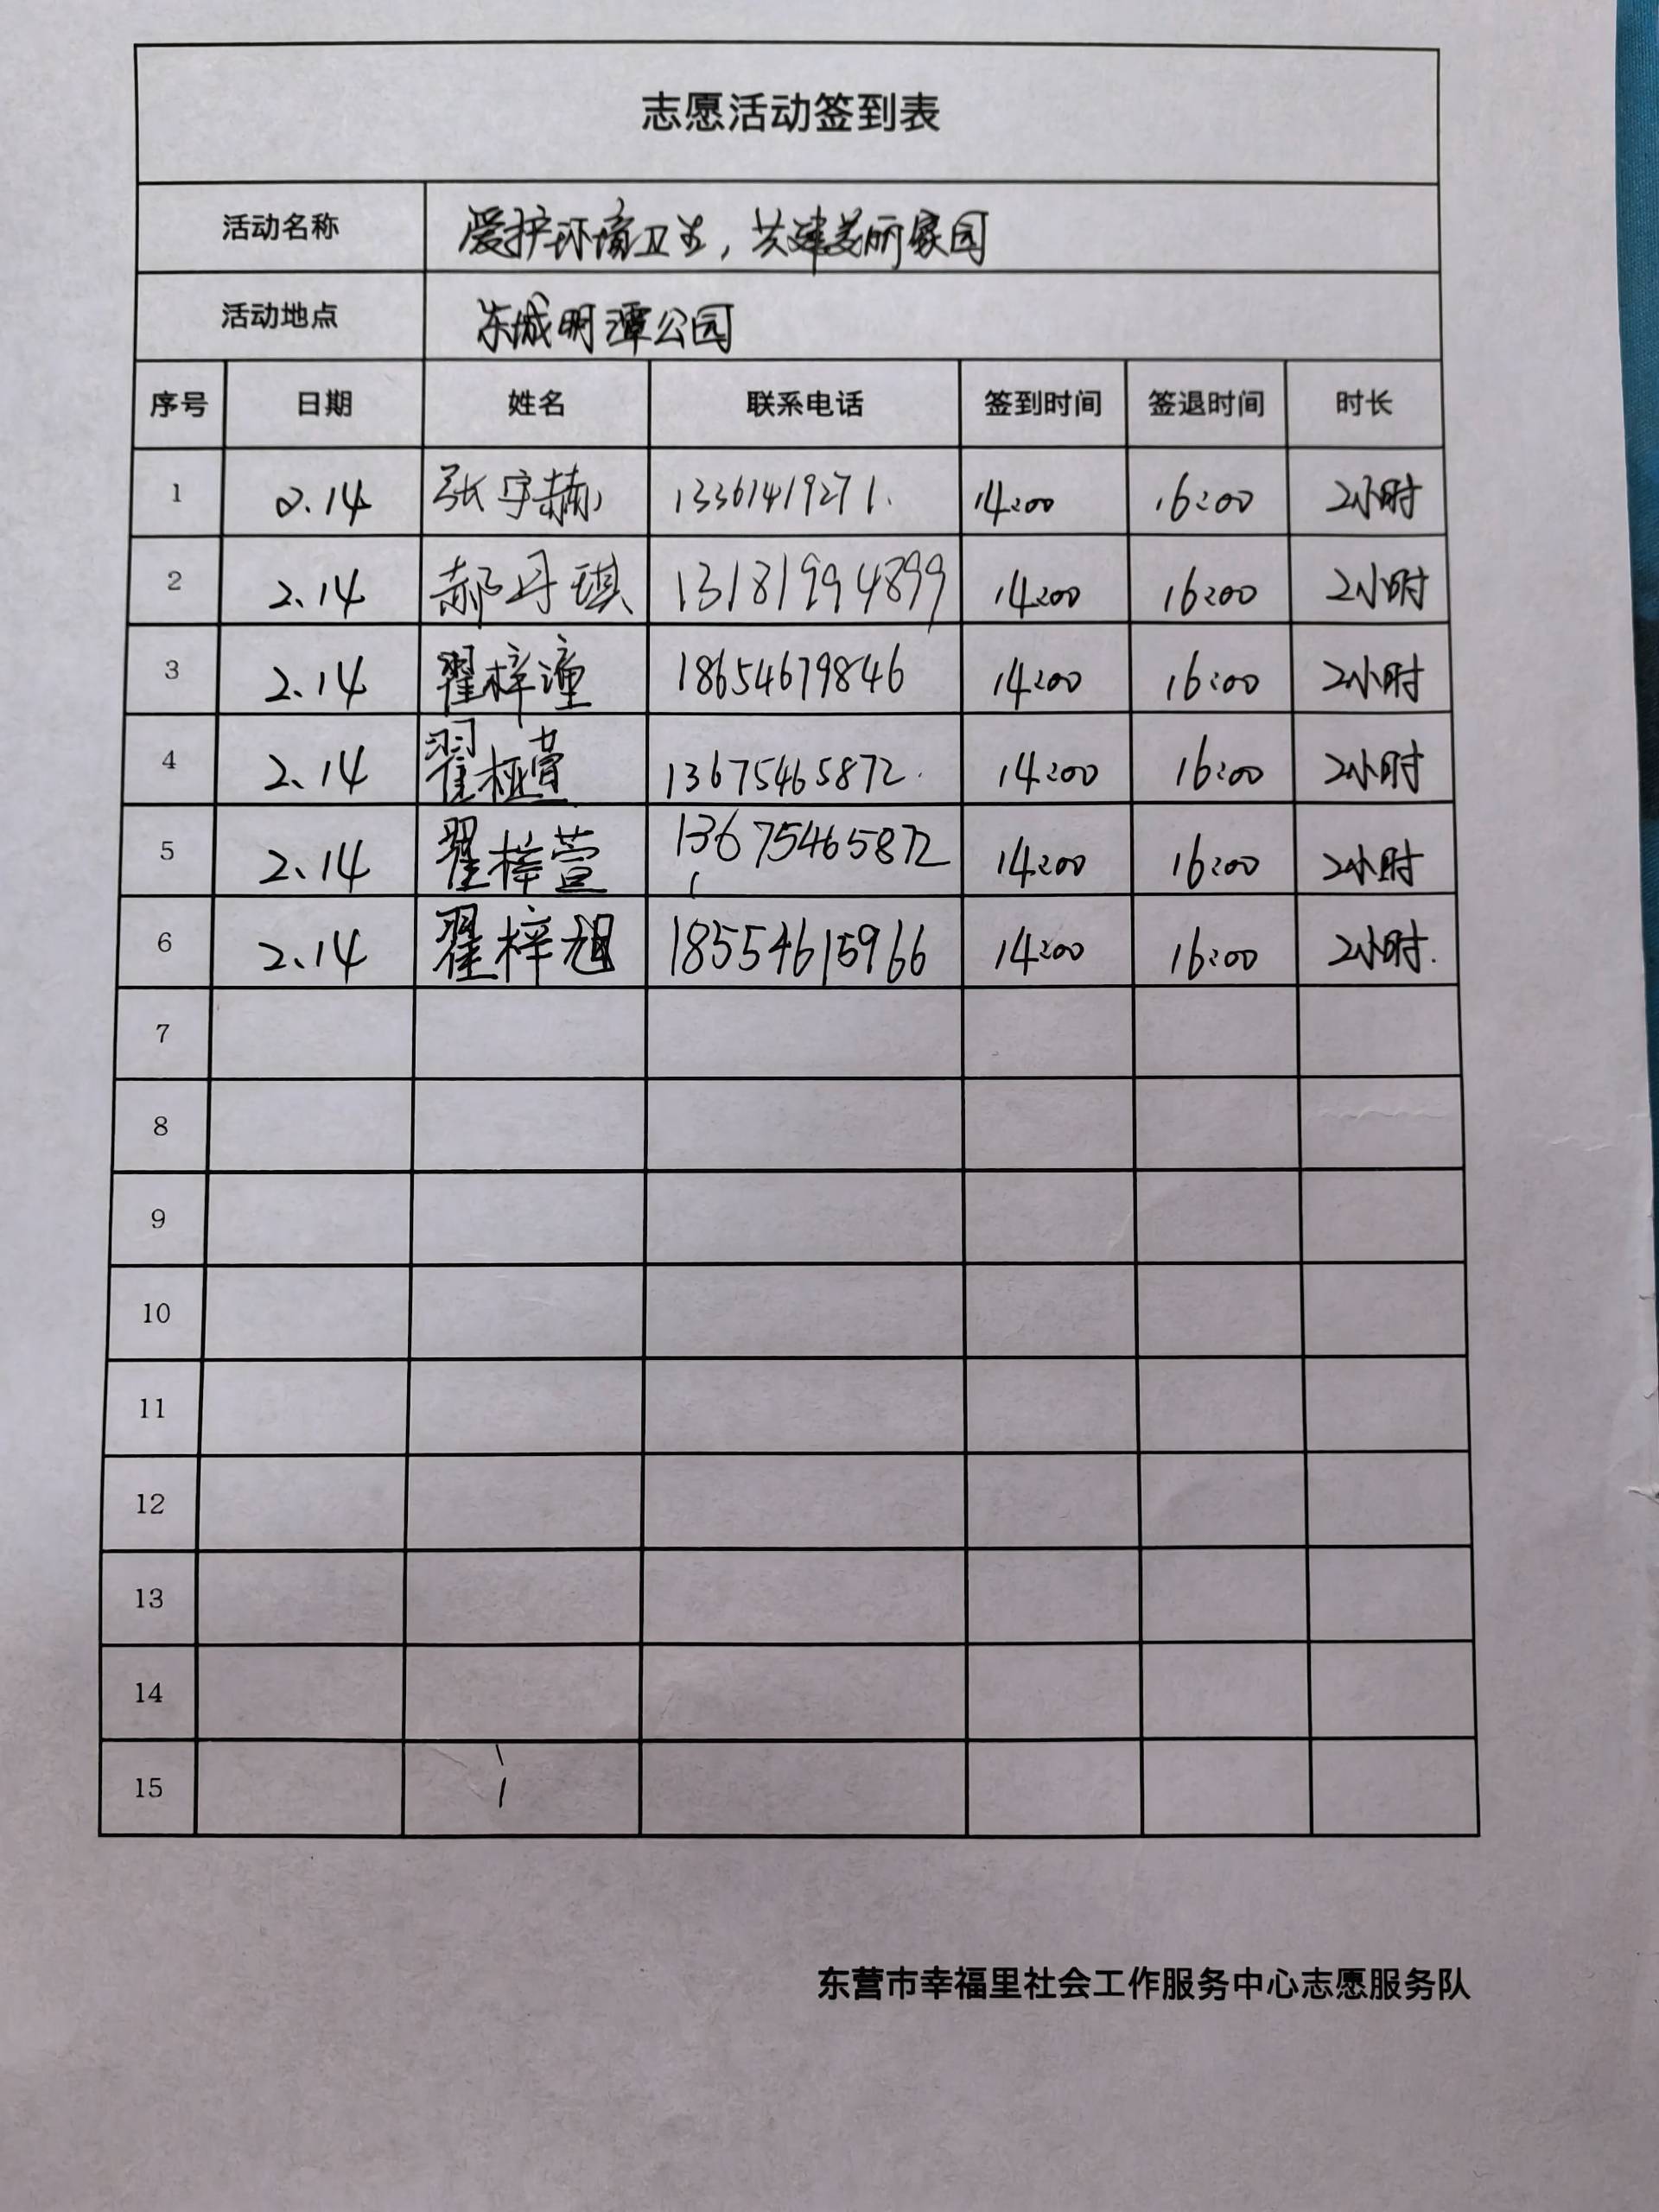 志愿活动签到表
活动名称 爱护环境卫生，共建美丽家园
活动地点 东城明潭公园
序号 日期 姓名 联系电话 签到时间 签退时间 时长
1 2.14 张宇赫 13361419271. 14:00 16:00 2小时
2 2.14 郝丹琪 13181994899 14:00 16:00 2小时
3 2.14 翟梓潼 18654679846 14:00 16:00 2小时
4 2.14 翟桠萱 13675465872. 14:00 16:00 2小时
5 2.14 翟梓萱 13675465872 14:00 16:00 2小时
6 2.14 翟梓旭 18554615966 14:00 16:00 2小时.
7
8
9
10
11
12
13
14
15
东营市幸福里社会工作服务中心志愿服务队